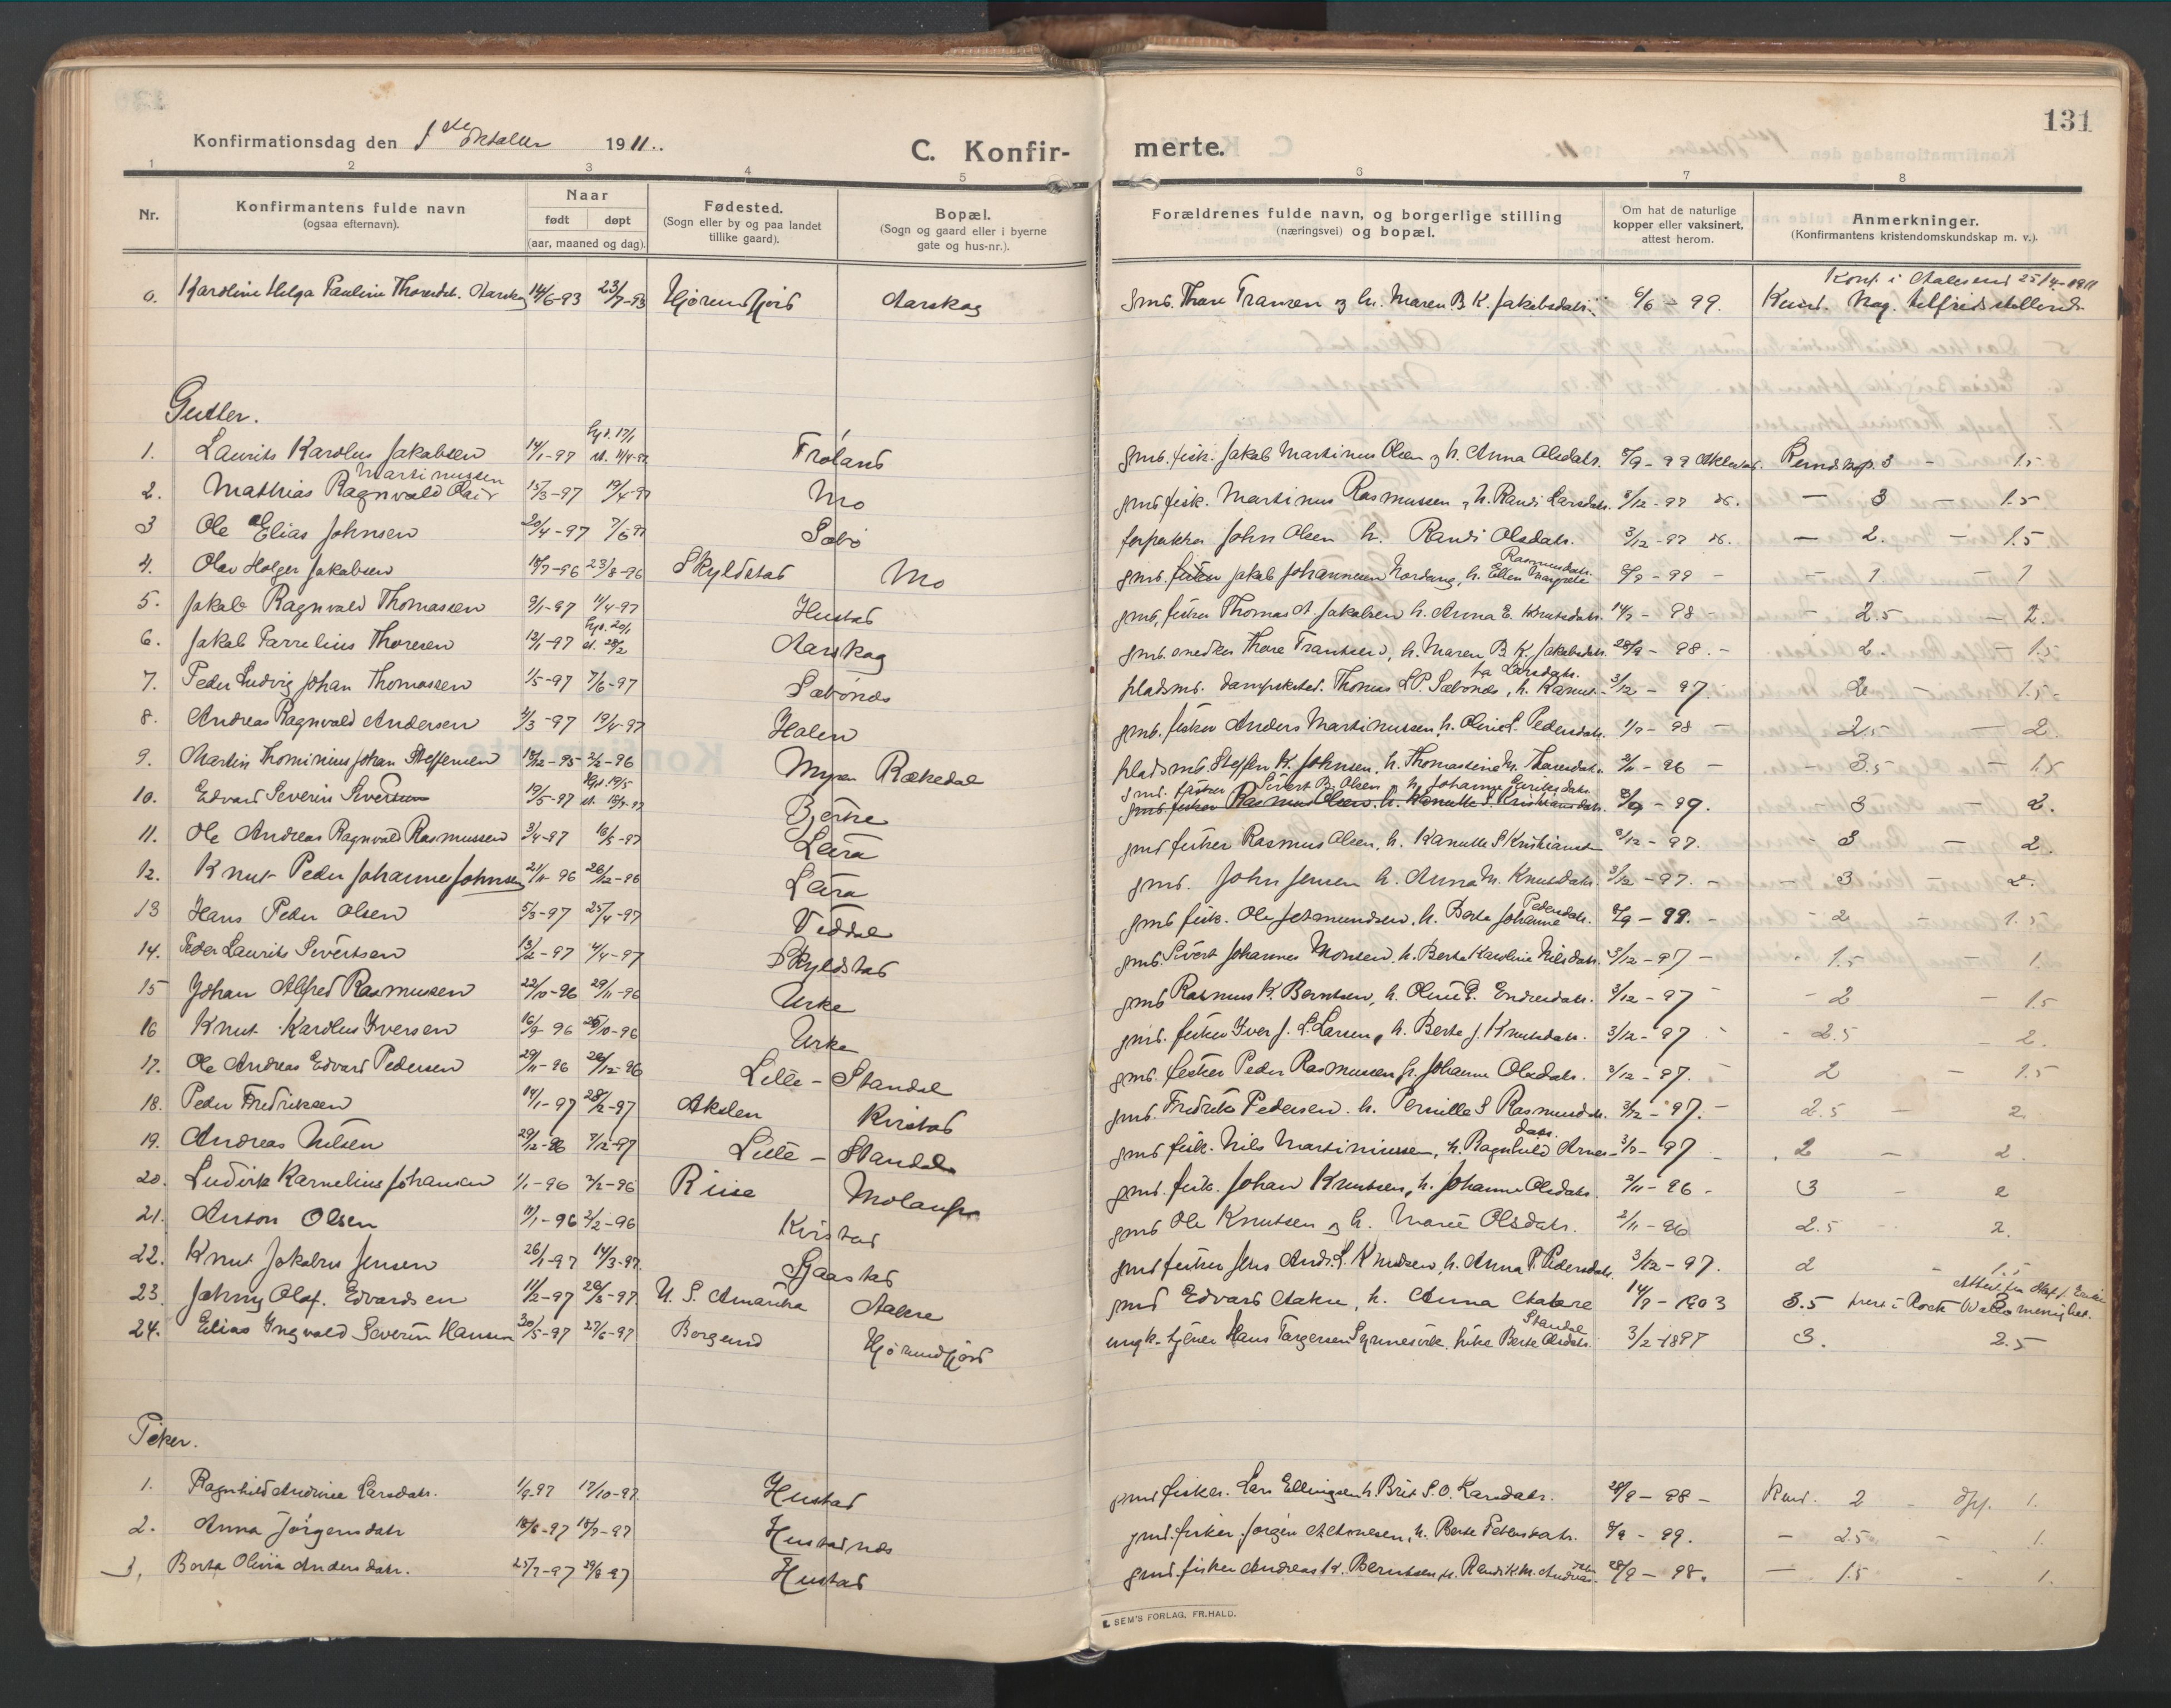 131
Konfirmationsdag den 1ste Oktober 1911.
C. Konfirmerte.
1 2 3 4 5 6 7 8
Nr.
Konfirmantens fulde navn (ogsaa efternavn).
Naar født døpt (aar, maaned og dag).
Fødested. (Sogn eller by og paa landet tillike gaard).
Bopæl. (Sogn og gaard eller i byerne gate og hus-nr.).
Forældrenes fulde navn, og borgerlige stilling (næringsvei) og bopæl.
Om hat de naturlige kopper eller vaksinert, attest herom.
Anmerkninger. (Konfirmantens kristendomskundskap m. v.).
Konf. i Aalesund 25/4-1911
0. Karoline Helga Pauline Thoresdt. Aarskog 14/6-93 23/7-93 Hjørundfjord Aarskog gmb. Thore Transen og h. Maren B. K. Jakobsdatr. 6/6 - 99. Kund. Nog. tilfredsstillende
Gutter.
1. Laurits Karolus Jakobsen 14/1-97 hjd. 17/1 st. 11/4-97 Frøland gmb. fisk. Jakob Martinus Olsen og h. Anna Olsdatr. 8/9 - 99 Kundskap. 3 - 1.5
2. Mathias Ragnvald Martinussen 15/3-97 19/4-97 Mo gmb fisk. Martinus Rasmussen, h. Randi Larsdatr. 3/12 - 97 - 3 - 1.5
3 Ole Elias Johnsen 20/4-97 7/6-97 Sæbø forpakter John Olsen h. Randi Olsdatr. 3/12-97 - 2. - 1.5
4. Olav Holger Jakobsen 18/7-96 23/8-96 Skyldstad Mo gmb. Jakob Johannessen Nordang, h. Ellen Margrete Rasmusdatr. 8/9 - 99 - - 1 - 1
5. Jakob Ragnvald Thomassen 9/1-97 11/4-97 Hustad gmb. fisker Thomas A. Jakobsen h. Anna E. Knutsdatr. 14/9 - 98 - - 2.5 - 2.
6. Jakob Parrelius Thoresen 12/1-97 hjd. 20/1 st. 28/2 Aarskog gmb. snedker Thore Frantsen, h. Maren B. K. Jakobsdatr. 28/9 - 98. - 2. - 1.5
7. Peder Ludvig Johan Thomassen 1/5-97 7/6-97 Sæbønes pladsmb. Thomas L. P. Sæbønes, h. Larsdatr. 3/12 - 97. 2 - 1.5
8. Andreas Ragnvald Andersen 4/3-97 19/4-97 Holen gmb. fisker Anders Martinussen, h. Oline L. Pedersdatr. 1/9 - 98 - 2.5 - 2.
9. Martin Thominius Johan Steffensen 12/12-95 2/2-96 Myren Rækedal pladsmb. Steffen K. Johnsen, h. Thomasine M. Thoresdatr. 2/11 - 96 - - 3.5 - 1.5
10. Edvard Severin Sivertsen 19/5-97 hjd. 19/5 Bjørke gmb. fisker Sivert B. Olsen h. Johanne Eriksdatr. 8/9 - 99. 3 - 2.
11. Ole Andreas Ragnvald Rasmussen 3/4-97 16/5-97 Leira gmb fisker Rasmus Olsen, h. Kanutte S Kristiansd 3/12 - 97. - 3 - 2.
12. Knut Peder Johannes Johnsen 21/11-96 26/12-96 Leira gmb. John Jensen h. Anna M. Knutsdatr. 3/12 - 97. - - 3 - 2.
13 Hans Peder Olsen 5/3-97 25/4-97 Viddal gmb fisk. Ole Jetmundsen. h. Berte Johanne Pedersdatr. 8/9 - 99. - - 2 - 1.5
14. Peder Laurits Sivertsen 13/2-97 4/4-97 Skyldstad gmb. Sivert Johannes Monsen. h. Berte Karoline Nilsdatr. 3/12 - 97 - - 1.5 - 1.
15 Johan Alfred Rasmussen 22/10-96 29/11-96 Urke gmb Rasmus K. Berntsen, h. Oline P. Endresdatr. 3/12 - 97 - - 2 - 1.5
16 Knut Karolus Iversen 16/9-96 25/10-96 Urke gmb. fisker Iver J. L. Larsen, h. Berte J. Knutsdatr. 3/12 - 97 - 2.5 - 2.
17. Ole Andreas Edvard Pedersen 29/11-96 26/12-96 Lille-Standal gmb. fisker Peder Rasmussen h. Johanne Olsdatr. 3/12 - 97. 2 - 1.5
18. Peder Fredriksen 14/1-97 28/2-97 Akslen Kvistad gmb. Fredrik Pedersen. h. Pernille S Rasmusd 3/12 - 97. - 2.5 - 2.
19. Andreas Nilsen 29/12-96 7/12-97 Lille-Standal gmb fisk. Nils Martinussen, h. Ragnhild Arnes-datr. 97 2 - 2.
20. Ludvik Karnelius Johansen 1/1-96 2/2-96 Riise Molaup gmb. fisk. Johan Knutsen, h. Johanne Olsdatr. 2/11 - 96 - 3 - 2
21. Anton Olsen 11/1-96 2/2-96 Kvistad gmb Ole Knutsen og h. Marie Olsdatr. 2/11 - 96 2.5 - 2.
22. Knut Jakobus Jensen 26/1-97 14/3-97. Gjaastad gmb fisker Jens Andr. L. Knudsen, h. Anna P. Pedersdatr. 3/12 - 97. 2 - 1.5
23. Johny Olaf. Edvardsen 11/2-97 U. S. Amerika Aakre gmb Edvard Aakre, h. Anna Aakre 14/9 - 1903 3.5 Attest fra prest i Rock menighet.
24. Elias Ingvald Severin Hansen 30/5-97 27/6-97 Borgund Hjørundfjord ungk. tjener Hans Torgersen Synnesvik, pike Berte Olsdatr. Standal 3/2-1897 3. 2.5
Piker.
1. Ragnhild Andrine Larsdatr. 1/9-97 17/10-97 Hustad gmb fisker. Lars Ellingsen h. Brit S. O. Karsdatr. 28/9 - 98 - Kund. 2 - Opf. 1.
2. Anna Jørgensdatr 18/6-97 18/7-97 Hustadnes gmb. fisker Jørgen h. Berte Petersdatr. 8/9 - 99. - 2.5 - 1.
3. Berta Olivia Andersdatr. 25/7-97 29/8-97 Hustad gmb. fisker Andreas K. Berntsen h. Randi K. M. Andreasdatr. 28/9 - 98. - 1.5 - 1.
E. SEM'S FORLAG, FR.HALD.